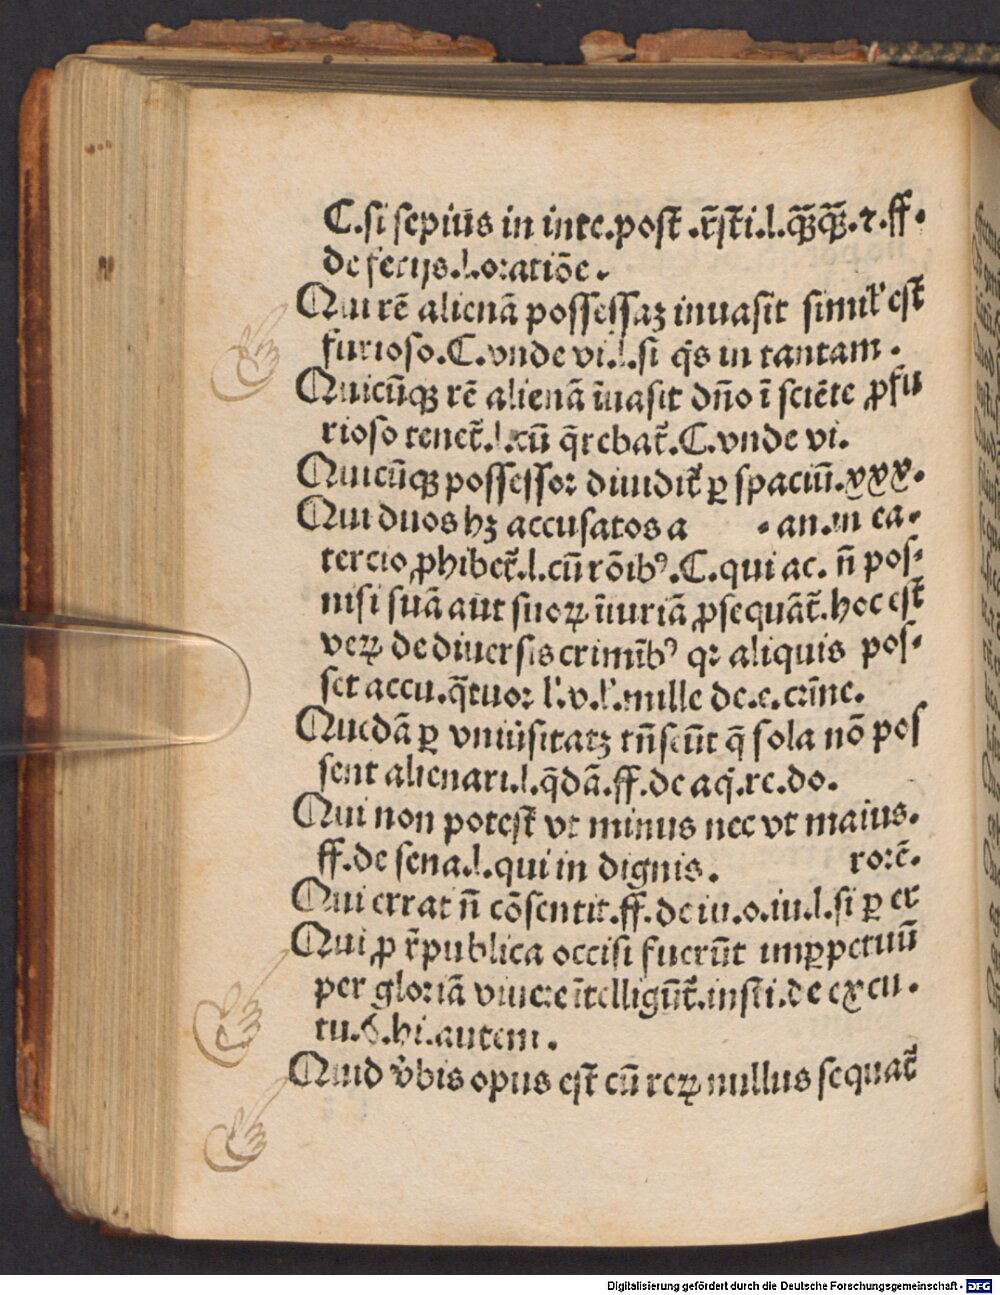 C.si sepiūs in inte.post .r̄sti.l.qq̄qq̄.⁊.ff.
de ferijs.l.oratiōe.
Qui rē alienā possessaꝫ inuasit simil' est
furioso.C.vnde vi.l.si q̄s in tantam.
Quicūqꝫ rē alienā īuasit dn̄o ī sciēte ꝓfu
rioso tenet̄.l.cū q̄rebat̄.C.vnde vi.
Quicūqꝫ possessor diuidit̄ ꝑ spaciū.xxx.
Qui duos hꝫ accusatos a . an.in ea.
tercio ꝓhibet̄.l.cū rōibꝰ.C.qui ac. n̄ pos-
nisi suā aut suoꝝ īiuriā ꝓsequāt̄.hoc est
veꝝ de diuersis crimībꝰ qꝛ aliquis pos-
set accu.q̄tuor l'.v.l'.mille de.e.crīne.
Quedā ꝑ vniūsitatꝫ trn̄seūt q̄ sola nō pos
sent alienari.l.q̄dā.ff.de aq̄.re.do.
Qui non potest vt minus nec vt maius.
ff.de sena.l.qui in dignis. rorē.
Qui errat n̄ cōsentit.ff.de iu.o.iu.l.si ꝑ er
Qui ꝓ r̄publica occisi fuerūt imꝑpetuū
per gloriā viuere ītelligūt̄.insti.de excu.
tu.§.hi.autem.
Quid v̄bis opus est cū reꝝ nullus sequat̄
Digitalisierung gefördert durch die Deutsche Forschungsgemeinschaft - DFG